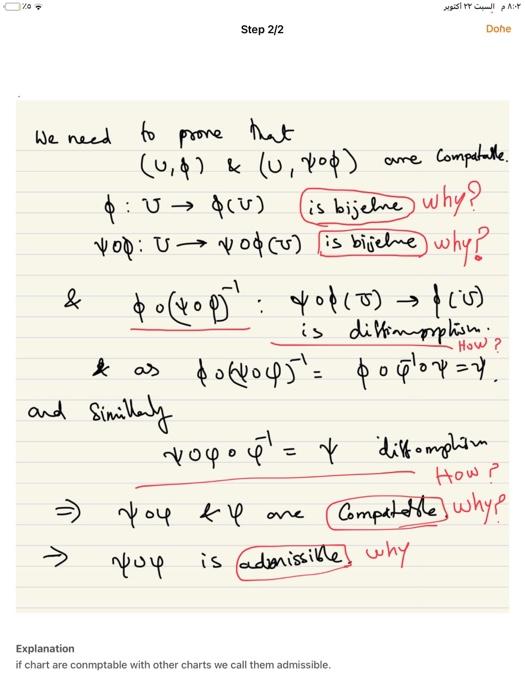 ٪٥ ٨:٠٢ م السبت ٢٢ أكتوبر
Step 2/2
Done
We need to prove that
(U, φ) & (U, ψoφ) are Compatable.
φ : U → φ(U) is bijetne why?
ψoφ : U → ψoφ(U) is bijetne why?
& φo(ψoφ)⁻¹ : ψoφ(U) → φ(U)
is diffimorphism.
How ?
& as φo(ψoφ)⁻¹ = φoφ⁻¹oψ = ψ.
and Similarly
ψoφoφ⁻¹ = ψ diffomphism
How ?
⇒ ψoφ & φ are Compatable, why?
⇒ ψoφ is admissible, why
Explanation
if chart are conmptable with other charts we call them admissible.